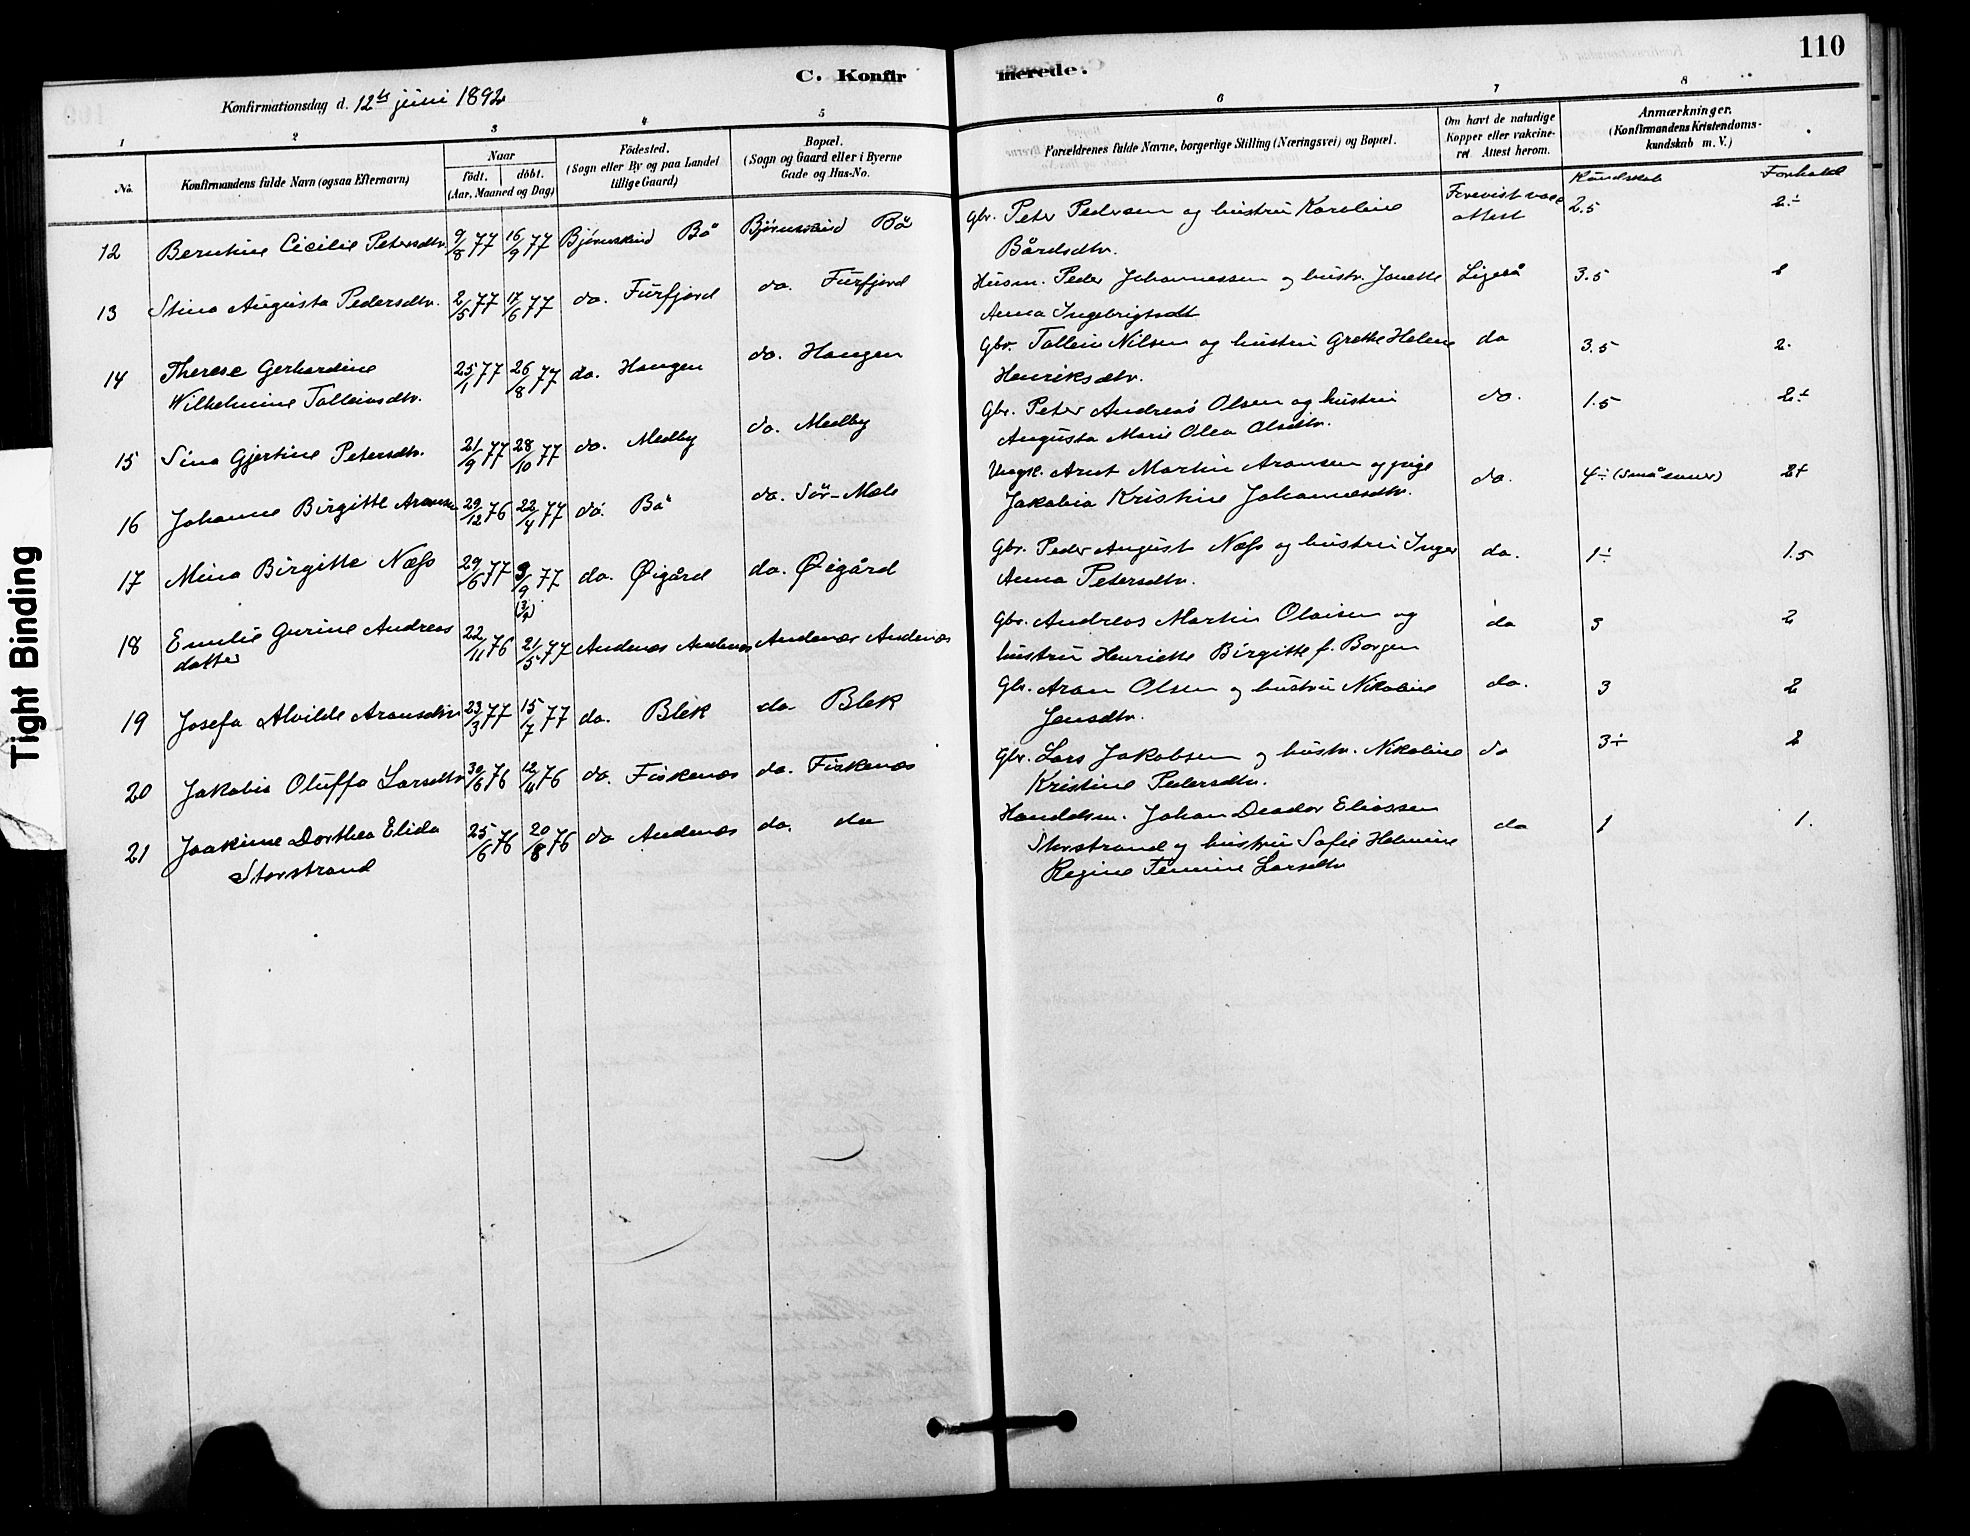 110
C. Konfirmerede.
Konfirmationsdag d. 12te juni 1892
1 2 3 4 5 6 7 8
No. Konfirmandens fulde Navn (ogsaa Efternavn) Naar födt. döbt. (Aar, Maaned og Dag) Födested. (Sogn eller By og paa Landet tillige Gaard) Bopæl. (Sogn og Gaard eller i Byerne Gade og Hus-No. Forældrenes fulde Navne, borgerlige Stilling (Næringsvei) og Bopæl. Om havt de naturlige Kopper eller vakcineret. Attest herom. Anmærkninger. (Konfirmandens Kristendomskundskab m. V.)
Kundskab Forhold
12 Berntine Cicilie Petersdtr. 9/8 77 16/9 77 Bjørnskind Bö Bjørnskind Bö Gbr. Peter Pedersen og hustru Karoline Forevist vacc. 2.5 2÷
Bårdsdtr. attest
13 Stina Augusta Pedersdtr. 2/5 77 17/6 77 do. Furfjord do. Furfjord Husm. Peder Johannessen og hustr. Jonette Ligeså 3.5
Anna Ingebrigtsdt
14 Therese Gerhardine 25/1 77 26/8 77 do. Haugen do. Haugen Gbr. Tollein Nilsen og hustru Grethe Helene do 3.5 2.
Wilhelmine Tolleinsdtr. Henriksdtr.
15 Sina Gjertine Petersdtr. 21/9 77 28/10 77 do. Medby do. Medby Gbr. Peter Andreas Olsen og hustru do. 1.5 2÷
Augusta Marie Olea Olsdtr.
16 Johanne Birgitte Aronsen 29/12 76 22/4 77 do. Bö do. Sör-Mele Ungk. Arnt Martin Aronsen og pige do. 4÷ (små evner) 2+
Jakobia Kristine Johannesdtr.
17 Mina Birgitte Næss 29/6 77 9/9 77 do. Øigård do. Øigård Gbr. Peder August Næss og hustru Inger do. 1÷ 1.5
Anna Petersdtr.
18 Emilie Gurine Andreas 22/11 76 21/5 77 Andenæs Andenæs Andenæs Andenæs Gbr. Andreas Martin Olaisen og do 3 2
datter hustru Henriette Birgitte f. Borgen
19 Josefa Alvilde Aronsdtr 23/3 77 15/7 77 do. Blek do. Blek Gbr. Aron Olsen og hustru Nikoline do. 3 2
Jensdtr.
20 Jakobia Oluffa Larsdtr 30/6 76 do. Fiskenæs do. Fiskenæs Gbr. Lars Jakobsen og hustr. Nikoline do 3÷ 2
Kristine Pedersdtr.
21 Joakime Dorthea Elida 25/6 76 20/8 76 do Andenæs do. do Handelsm. Johan Deador Eliassen do 1 1.
Storstrand Storstrand og hustru Sofie Helmine
Regine Larsdtr
Tight Binding